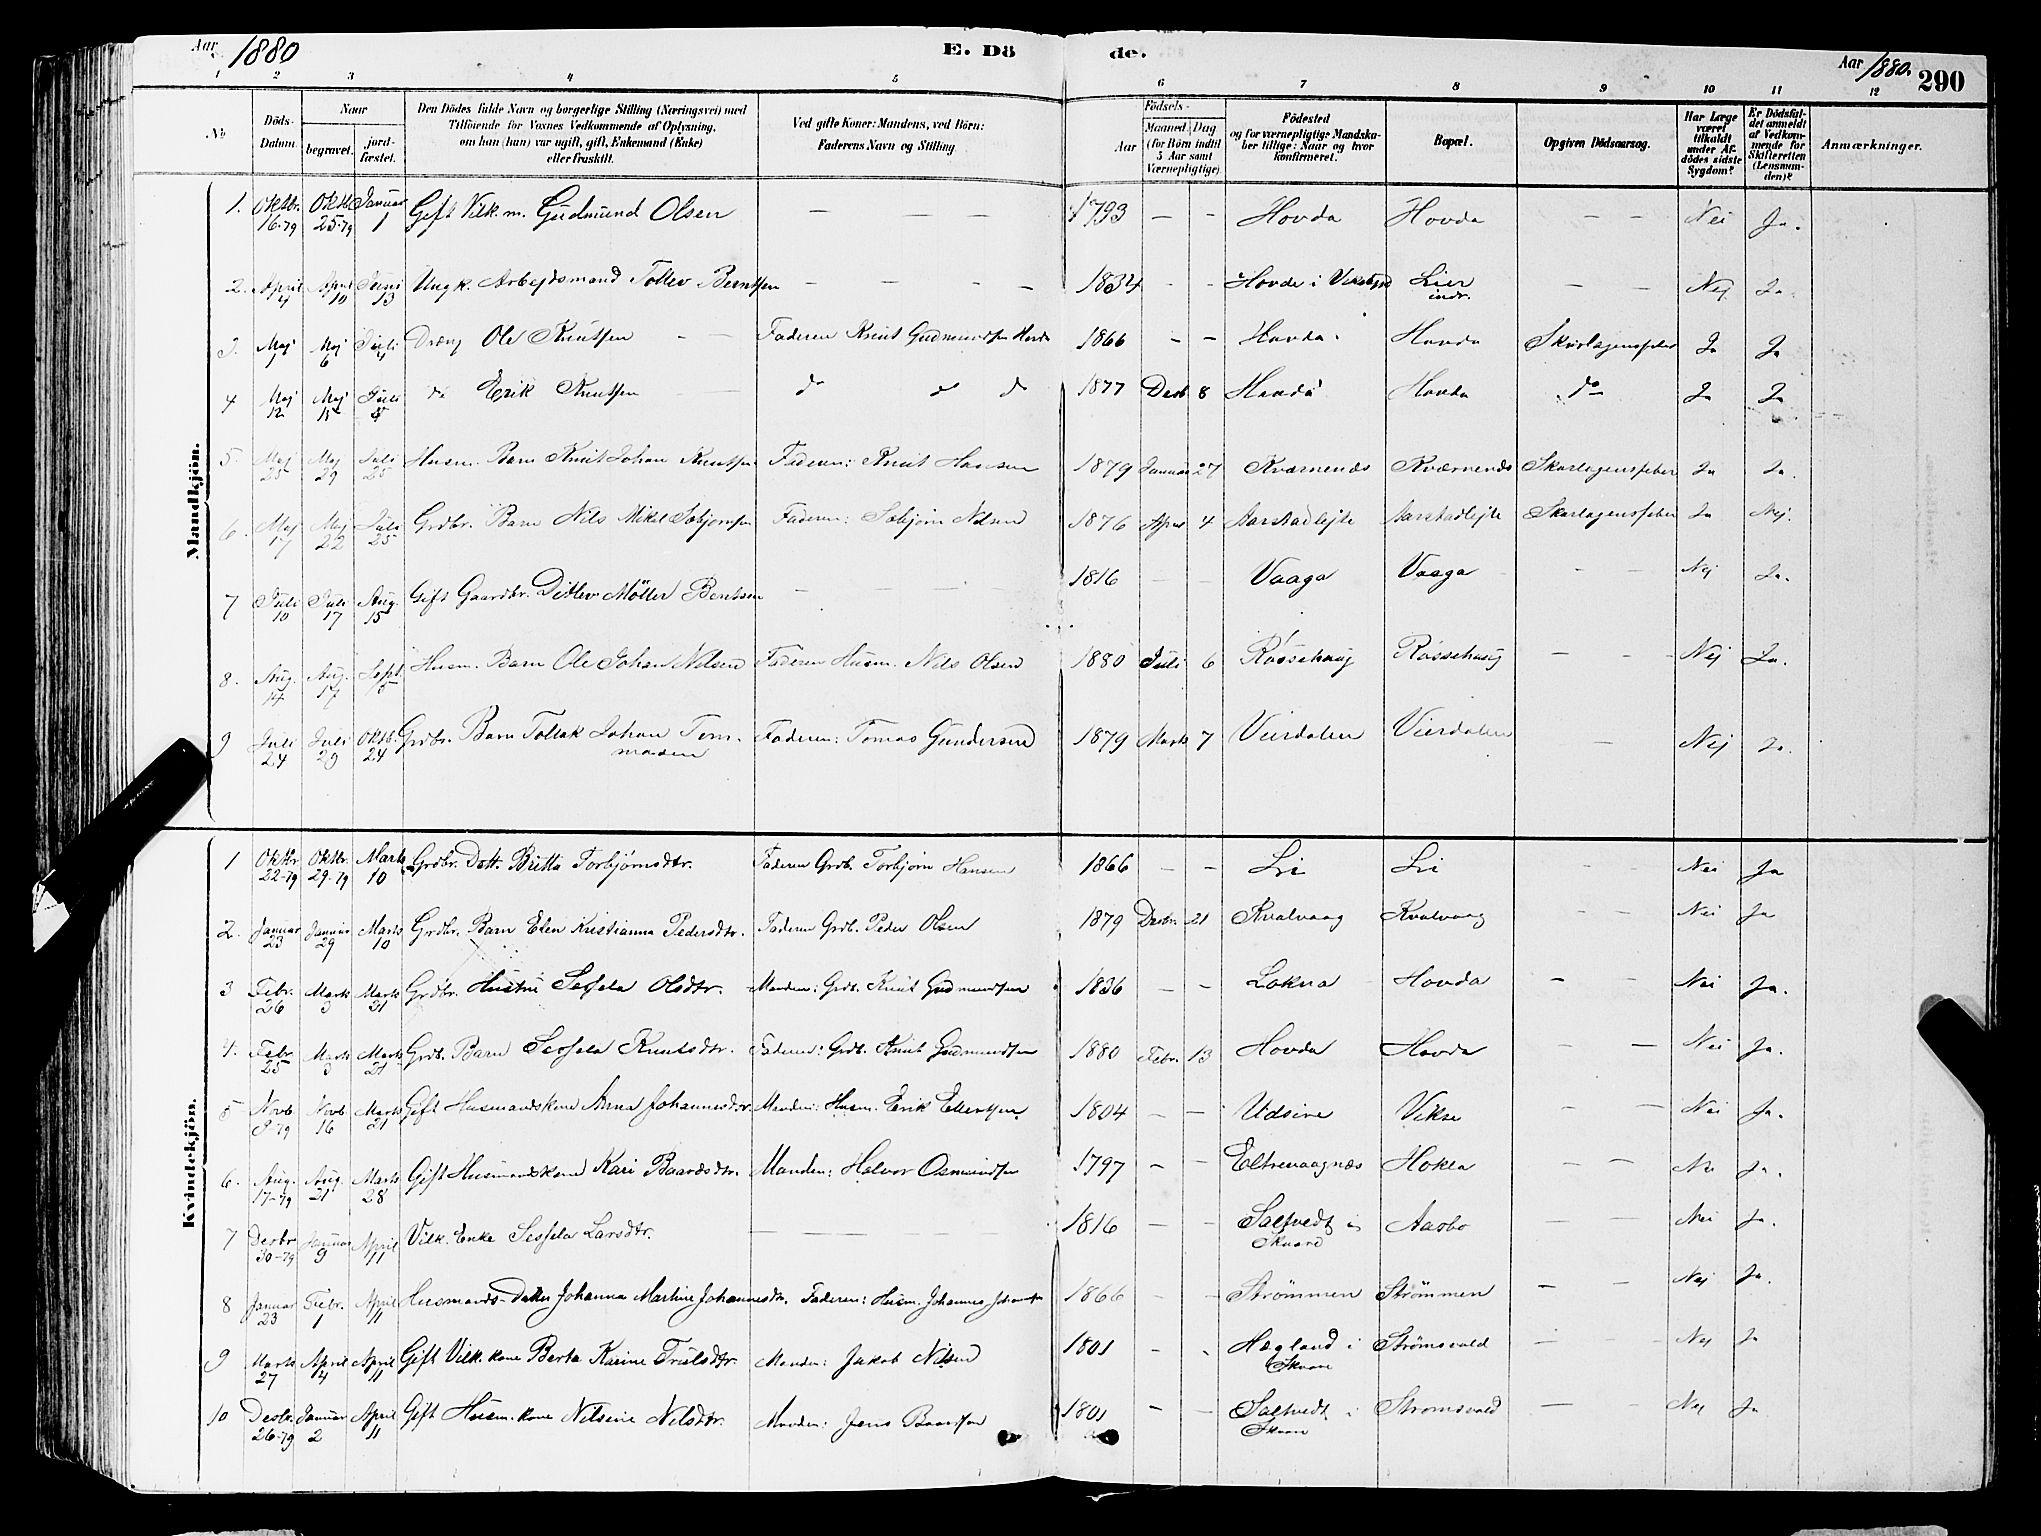 Aar 1880
E. Dö
de.
Aar 1880.
290
1 2 3 4 5 6 7 8 9 10 11 12
No
Döds-Datum.
Naar
begravet.
jord-fæstet.
Den Dödes fulde Navn og borgerlige Stilling (Næringsvei) med
Tilföiende for Voxnes Vedkommende af Oplysning,
om han (hun) var ugift, gift, Enkemand (Enke)
eller fraskilt.
Ved gifte Koner: Mandens, ved Börn:
Faderens Navn og Stilling
Födsels-
Aar
Maaned. Dag
(for Börn indtil
5 Aar samt
Værnepligtige)
Födested
og for værnepligtige Mandska-
ber tillige: Naar og hvor
konfirmeret.
Bopæl.
Opgiven Dödsaarsag.
Har Læge
været
tilkaldt
under Af-
dödes sidste
Sygdom?
Er Dödsfal-
det anmeldt
af Vedkom-
mende for
Skifteretten
(Lensman-
den)?
Anmærkninger.
Mandkjön.
1. Oktbr. 16-79 Oktb. 25-79 Januar 1 Gift Vilk. m. Gudmund Olsen — — — 1793 — — Hovda Hovda — — Nei Ja.
2. April 4 April 10 Juni 13 Ungk. Arbejdsmand Tollev Berntsen — — — — 1834 - - Hovda i Lier indr. — — Nej Ja.
3. Maj 1 Maj 6 Juli 4 Dreng Ole Knutsen — — Faderen Knut Gudmundsen Hovda 1866 - - Hovda Hovda Skarlagensfeber Ja Ja
4 Maj 12 Maj 15 Juli 4 do Erik Knutsen — do do do 1877 Desb 8 Hovda Hovda do Ja Ja
5. Maj 25 Maj 29 Juli 25 Husm. Barn Knut Johan Knutsen Faderen: Knut Hansen 1879 Januar 27 Kværnenæs Kværnenæs Skarlagensfeber Ja Ja.
6. Maj 17 Maj 22 Juli 25 Grdbr. Barn Nils Mikal Asbjørnsen Faderen: Asbjørn Nilsen 1876 April 4 Aarstadlejte Aarstadlejte Skarlagensfeber Ja Nej.
7 Juli 10 Juli 17 Aug. 15 Gift Gaardbr. Ditlev Möller Bentsen — — — 1816 — — Vaaga Vaaga — — Nej Ja.
8. Aug. 14 Aug. 17 Sept. 5 Husm. Barn Ole Johan Nilsen Faderen Husm. Nils Olsen 1880 Juli 6 Røssehaug Røssehaug — — Nej Ja.
9 Juli 24 Juli 29 Oktb. 24 Grdbr. Barn Tollak Johan Tom-
masen Faderen: Tomas Gundersen 1879 Marts 7 Vierdalen Vierdalen — Nej Ja.
Kvindekjön.
1 Oktbr 22-79 Oktbr. 29-79 Marts 10 Grdbr. Dott. Britta Torbjørnsdtr. Faderen Grdb. Torbjørn Hansen 1866 — — Li Li Nei Ja
2. Januar 23 Januar 29 Marts 10 Grdbr. Barn Elen Kristianna Pedersdtr. Faderen Grdb. Peder Olsen 1879 Desbr. 21 Kvalvaag Kvalvaag — — Nei Ja
3 Febr. 26 Marts 3 Marts 21 Grdbr. Hustru Sessela Olsdtr. Manden: Grdb. Knut Gudmundsen 1836 — — Lokna Hovda — — Nei Ja.
4. Febr. 25 Marts 3 Marts 21 Grdb. Barn Sessela Knutsdtr. Faderen: Grdb. Knut Gudmundsen 1880 Febr. 13 Hovda Hovda — — Nei Ja.
5 Novb 8-79 Novb 16 Marts 21 Gift Husmandskone Anna Johannesdtr. Manden: Husm. Erik Ellertsen. 1804 — — Udsire Vikse — — Nei Ja.
6. Aug. 17-79 Aug. 21 Marts 28 Gift Husmandskone Kari Baardsdtr. Manden: Halvor Osmundsen 1797 — — Eltrevaagnæs Hokla — — Nei Ja.
7 Desbr 30-79 Januar 9 April 11 Vilk. Enke Sessela Larsdtr. — — — 1816 — — Saltvedt i Skaare Aasbo — — Nei Ja.
8 Januar 23 Febr. 1 April 11 Husmands-Datter Johanna Martine Johannesdtr. Faderen: Husm. Johannes 1866 - - Strømmen Strømmen — — Nej Ja.
9 Marts 27 April 4 April 11 Gift Vilk. kone Berta Karine Trulsdtr. Manden: Jakob Nilsen 1801 - - Hægland i Skaare Strømsvold — — Nej Ja
10 Desbr. 26-79 Januar 2 April 11 Gift Husm. kone Nilsine Nilsdtr. Manden: Jens Baardsen 1801 - - Saltvedt i Skaare Strømsvold — — Nej Ja